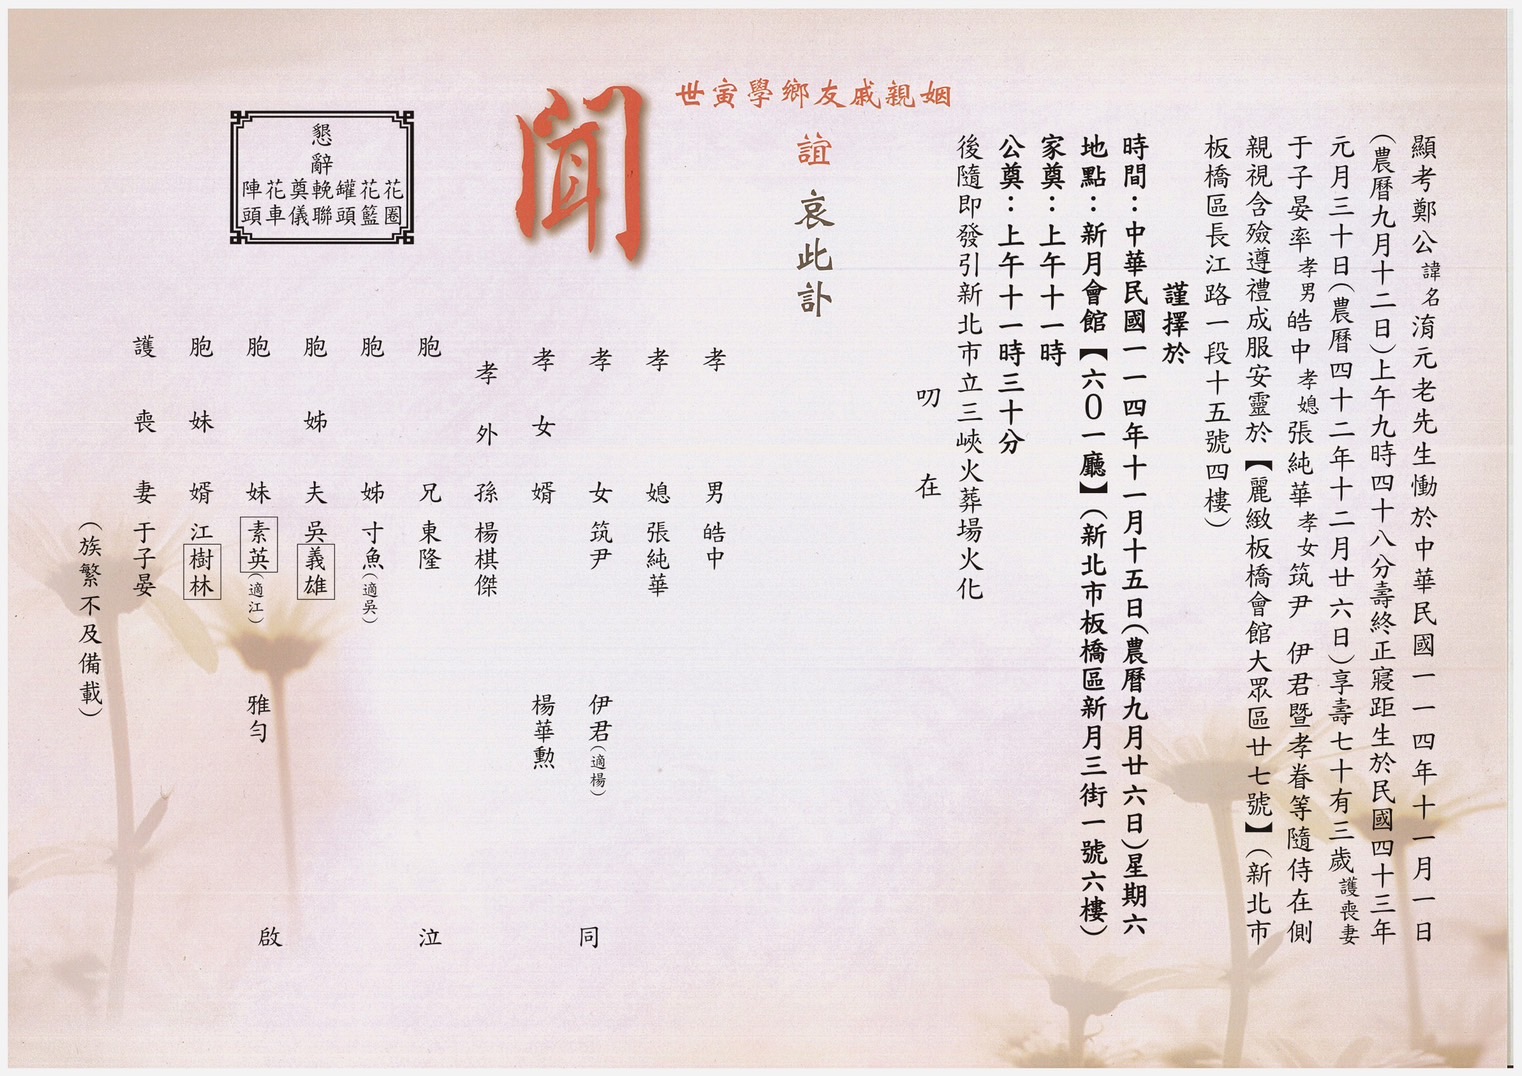 顯考鄭公諱名淯元老先生慟於中華民國一一四年十一月一日
(農曆九月十二日)上午九時四十八分壽終正寢距生於民國四十三年
元月三十日(農曆四十二年十二月廿六日)享壽七十有三歲護喪妻
于子晏率孝男皓中孝媳張純華孝女筑尹 伊君暨孝眷等隨侍在側
親視含殮遵禮成服安靈於【麗緻板橋會館大眾區廿七號】(新北市
板橋區長江路一段十五號四樓)
謹擇於
時間：中華民國一一四年十一月十五日(農曆九月廿六日)星期六
地點：新月會館【六〇一廳】(新北市板橋區新月三街一號六樓)
家奠：上午十一時
公奠：上午十一時三十分
後隨即發引新北市立三峽火葬場火化
叨在
姻親戚友鄉學寅世
誼 哀此訃
聞
懇辭
花圈 花籃 罐頭 輓聯 奠儀 花車 陣頭
孝男 皓中
孝媳 張純華
孝女 筑尹 伊君(適楊)
孝女婿 楊華勲
孝外孫 楊棋傑
胞兄 東隆
胞姊 寸魚(適吳)
胞姊夫 吳義雄
胞妹 素英(適江) 雅勻
胞妹婿 江樹林
護喪妻 于子晏
(族繁不及備載)
同 泣 啟